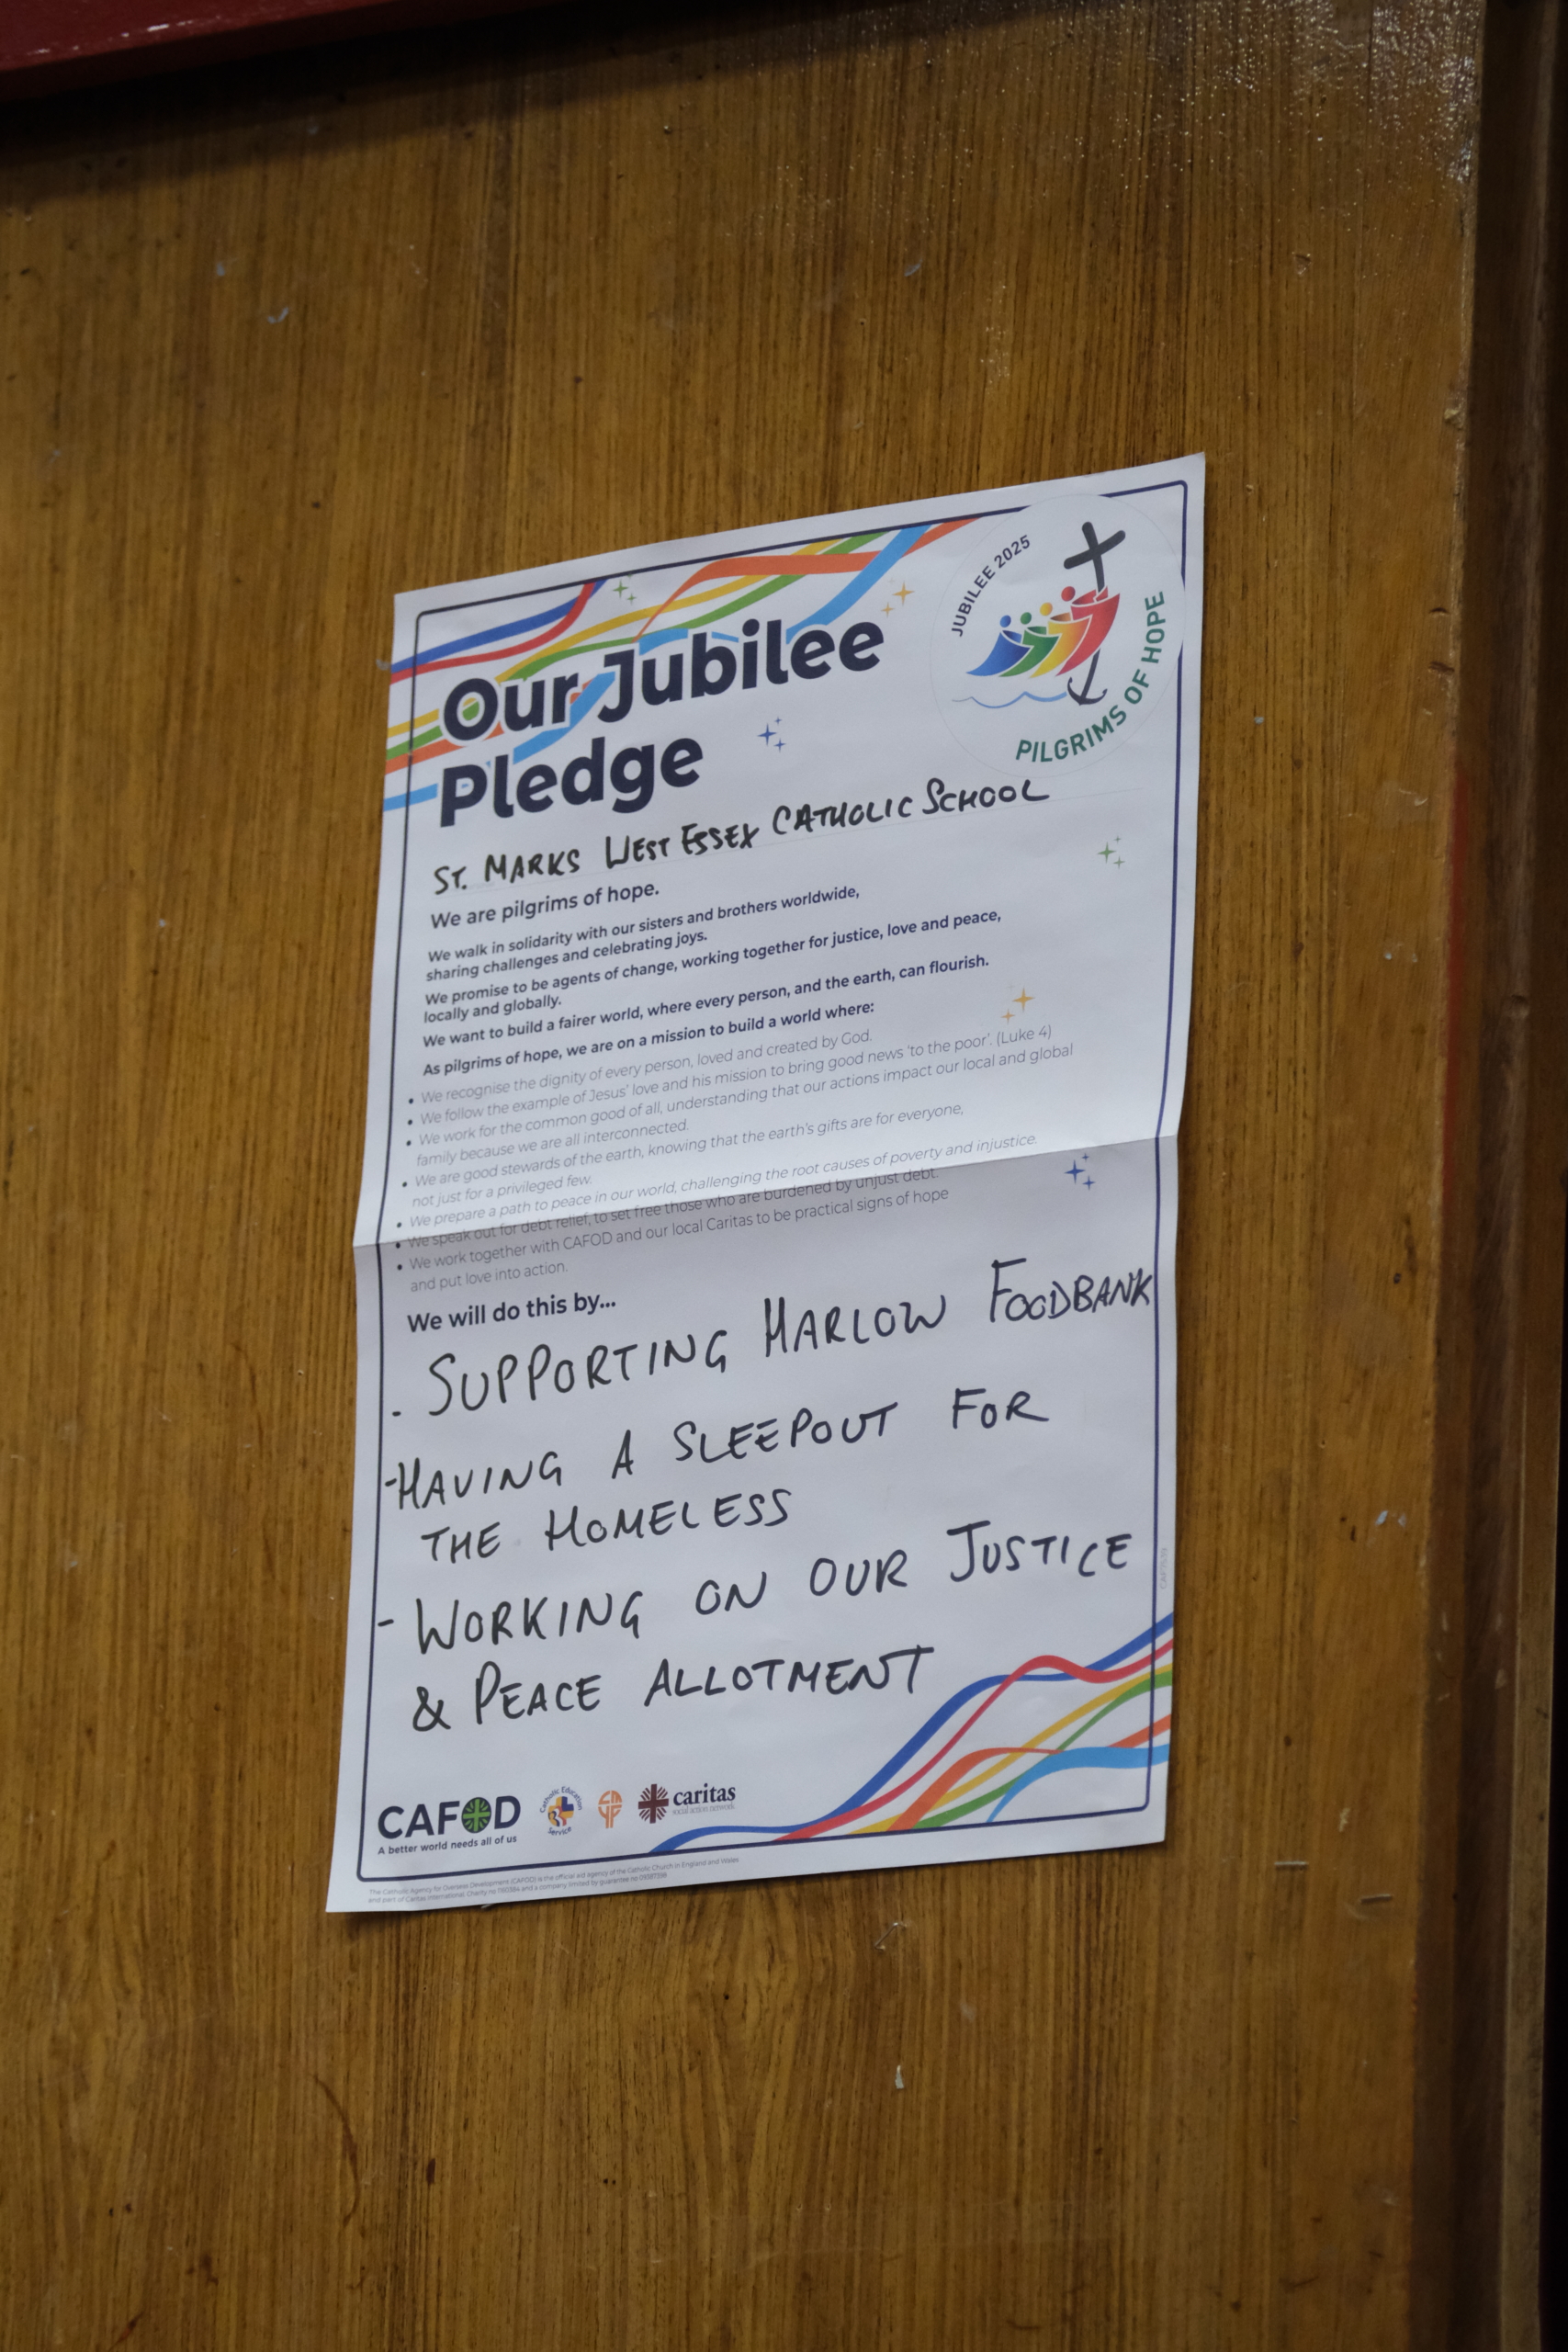 JUBILEE 2025
PILGRIMS OF HOPE
Our Jubilee
Pledge
ST. MARKS WEST ESSEX CATHOLIC SCHOOL
We are pilgrims of hope.
We walk in solidarity with our sisters and brothers worldwide,
sharing challenges and celebrating joys.
We promise to be agents of change, working together for justice, love and peace,
locally and globally.
We want to build a fairer world, where every person, and the earth, can flourish.
As pilgrims of hope, we are on a mission to build a world where:
• We recognise the dignity of every person, loved and created by God.
• We follow the example of Jesus' love and his mission to bring good news 'to the poor'. (Luke 4)
• We work for the common good of all, understanding that our actions impact our local and global
family because we are all interconnected.
• We are good stewards of the earth, knowing that the earth's gifts are for everyone,
not just for a privileged few.
• We prepare a path to peace in our world, challenging the root causes of poverty and injustice.
• We speak out for debt relief, to set free those who are burdened by unjust debt.
• We work together with CAFOD and our local Caritas to be practical signs of hope
and put love into action.
We will do this by...
- SUPPORTING HARLOW FOODBANK
- HAVING A SLEEPOUT FOR
THE HOMELESS
- WORKING ON OUR JUSTICE
& PEACE ALLOTMENT
CAFOD
A better world needs all of us
Catholic Education
Service
caritas
social action network
The Catholic Agency for Overseas Development (CAFOD) is the official aid agency of the Catholic Church in England and Wales
and part of Caritas International. Charity no and a company limited by guarantee no